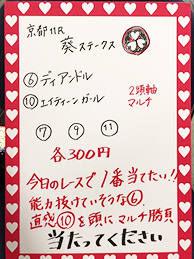 京都11R
葵ステークス
⑥ ディアンドル
⑩ エイティーンガール
2頭軸
マルチ
⑦ ⑨ ⑪
各300円
今日のレースで1番当てたい!!
能力抜けていそうな⑥
直感⑩を頭にマルチ勝負
当たってください